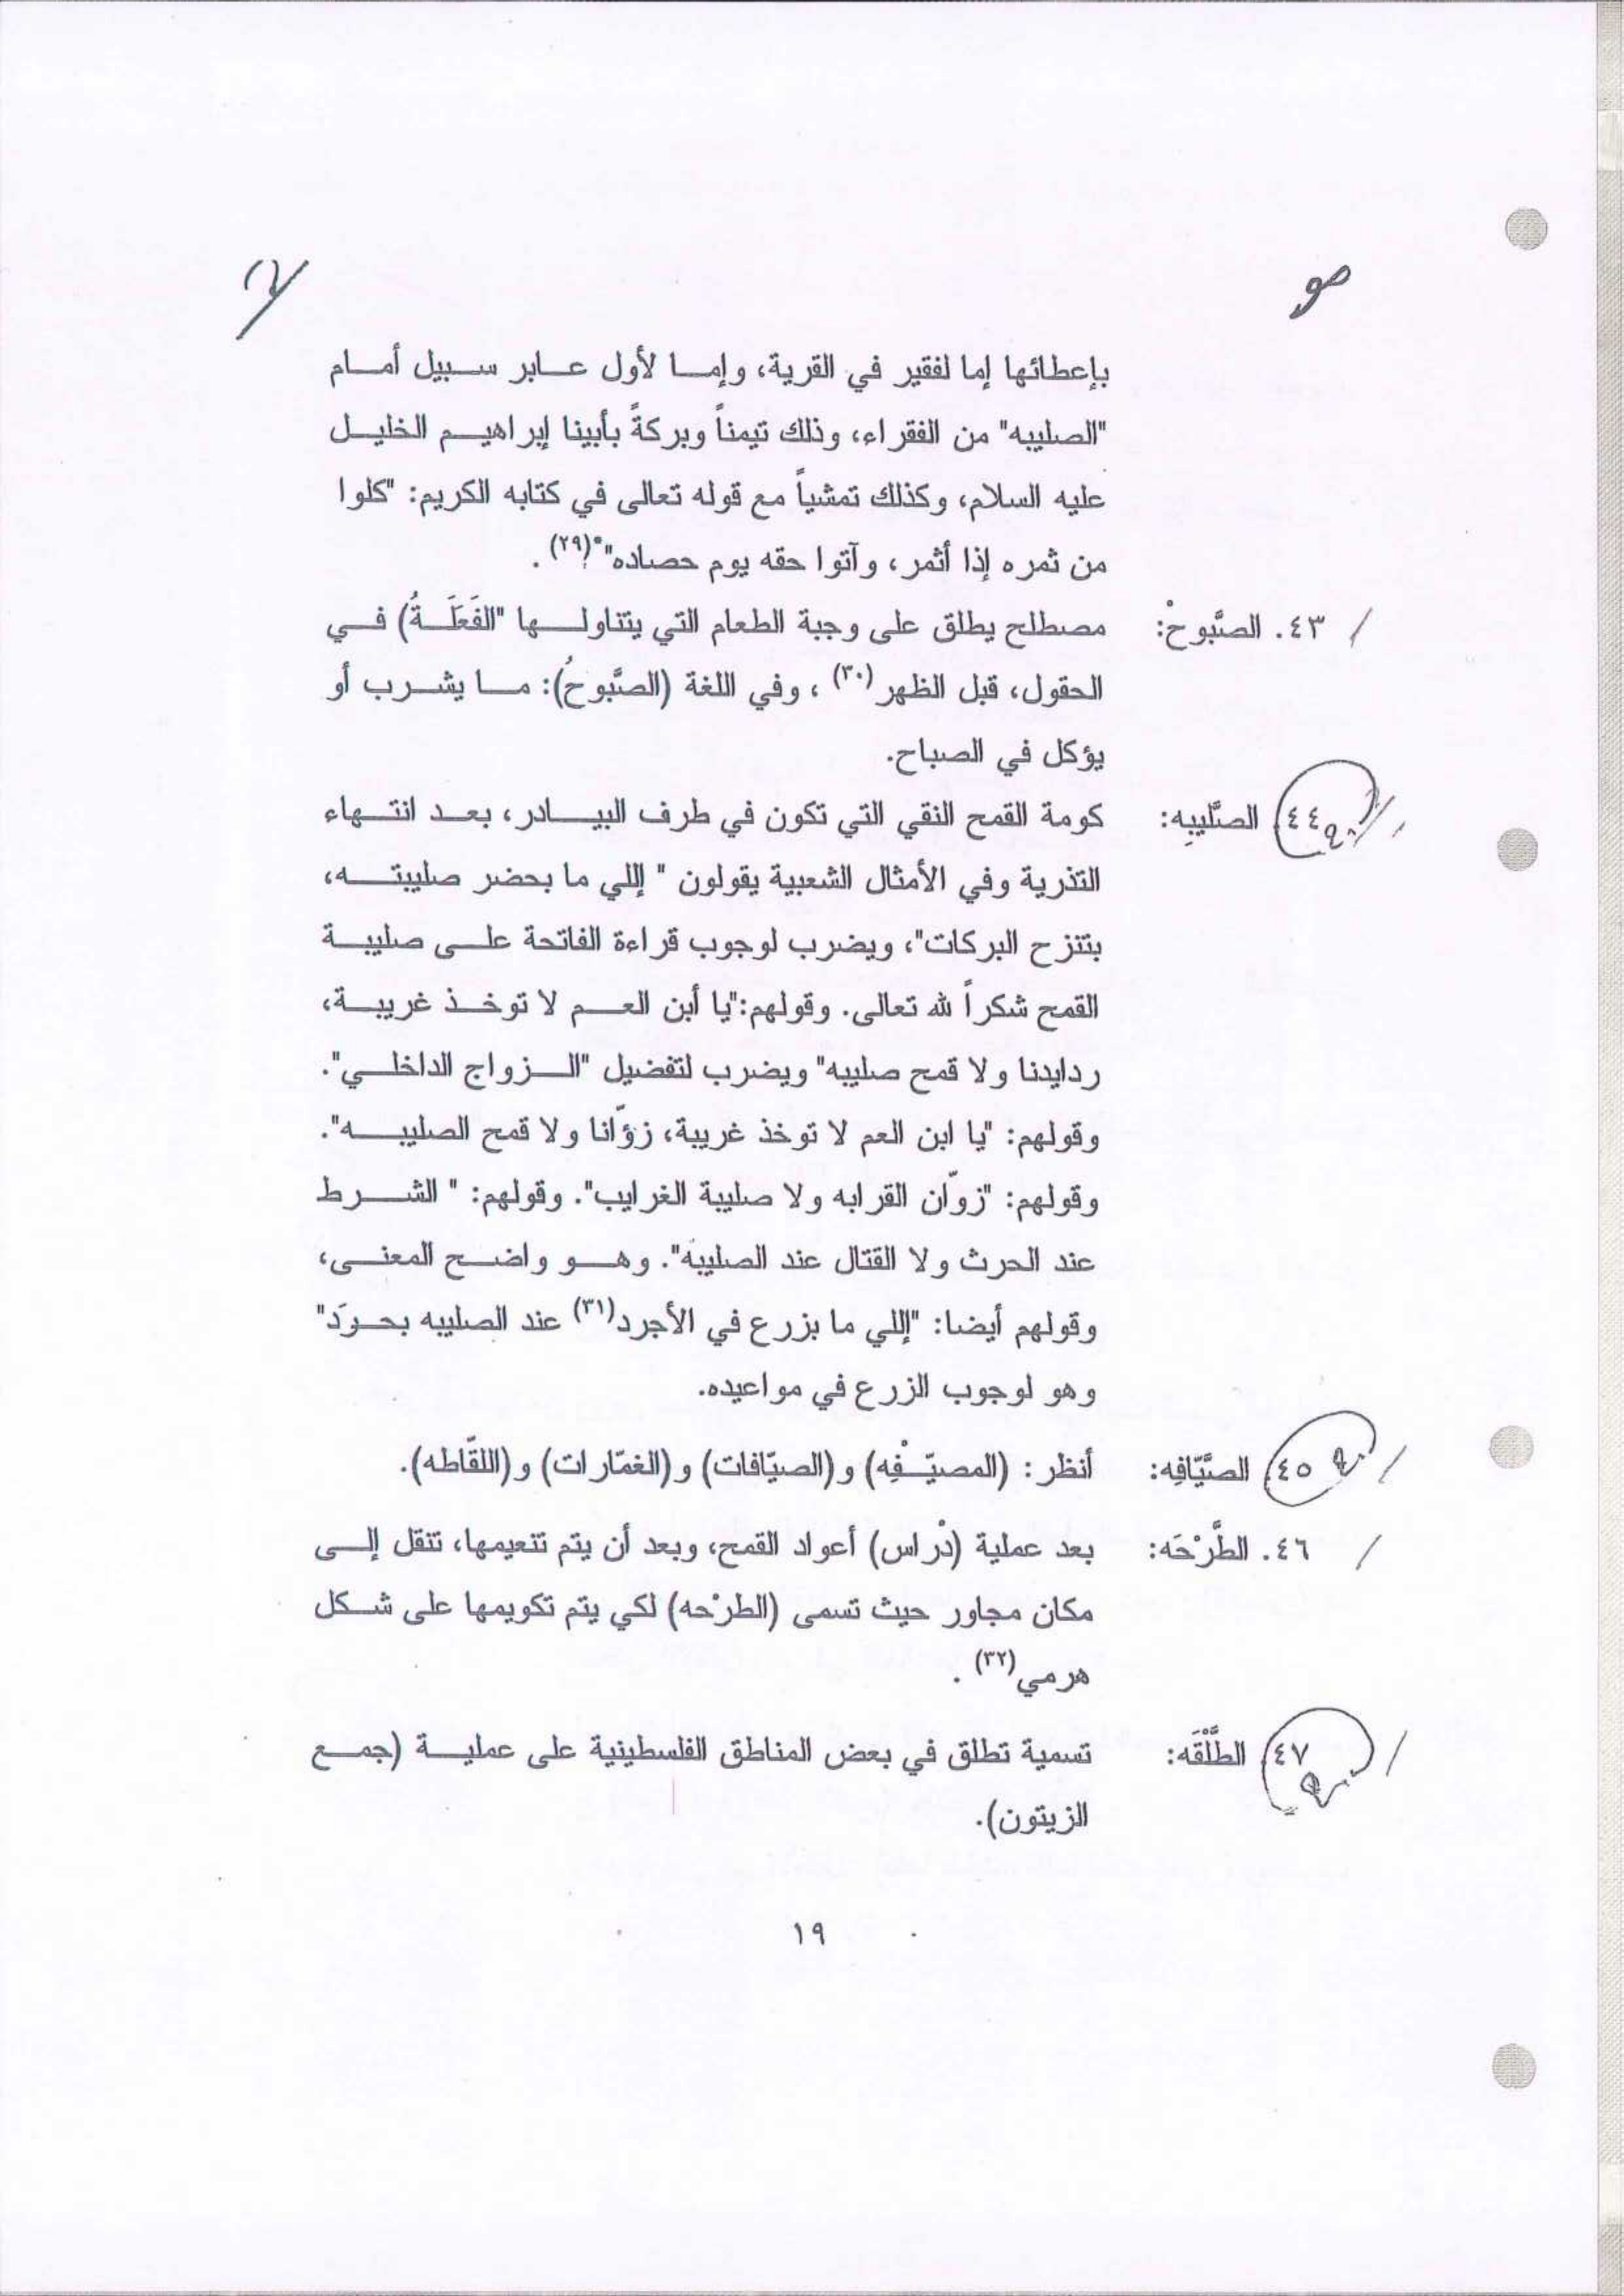 بإعطائها إما لفقير في القرية، وإما لأول عابر سبيل أمام
"الصليبه" من الفقراء، وذلك تيمناً وبركةً بأبينا إبراهيم الخليل
عليه السلام، وكذلك تمشياً مع قوله تعالى في كتابه الكريم: "كلوا
من ثمره إذا أثمر، وآتوا حقه يوم حصاده"(٢٩).
٤٣. الصَّبوحْ: مصطلح يطلق على وجبة الطعام التي يتناولها "الفَعَلَةُ) في
الحقول، قبل الظهر(٣٠)، وفي اللغة (الصَّبوحُ): ما يشرب أو
يؤكل في الصباح.
٤٤. الصَّليبِه: كومة القمح النقي التي تكون في طرف البيادر، بعد انتهاء
التذرية وفي الأمثال الشعبية يقولون " إللي ما بحضر صليبته،
بتنزح البركات"، ويضرب لوجوب قراءة الفاتحة على صليبة
القمح شكراً لله تعالى. وقولهم:"يا أبن العم لا توخذ غريبة،
ردايدنا ولا قمح صليبه" ويضرب لتفضيل "الزواج الداخلي".
وقولهم: "يا ابن العم لا توخذ غريبة، زؤّانا ولا قمح الصليبه".
وقولهم: "زوّان القرابه ولا صليبة الغرايب". وقولهم: " الشرط
عند الحرث ولا القتال عند الصليبه". وهو واضح المعنى،
وقولهم أيضا: "إللي ما بزرع في الأجرد(٣١) عند الصليبه بحوَد"
وهو لوجوب الزرع في مواعيده.
٤٥. الصَّيّافِه: أنظر: (المصيّفْه) و(الصيّافات) و(الغمّارات) و(اللقّاطه).
٤٦. الطَّرْحَه: بعد عملية (دْراس) أعواد القمح، وبعد أن يتم تنعيمها، تنقل إلى
مكان مجاور حيث تسمى (الطرْحه) لكي يتم تكويمها على شكل
هرمي(٣٢).
٤٧. الطَّلْقَه: تسمية تطلق في بعض المناطق الفلسطينية على عملية (جمع
الزيتون).
١٩